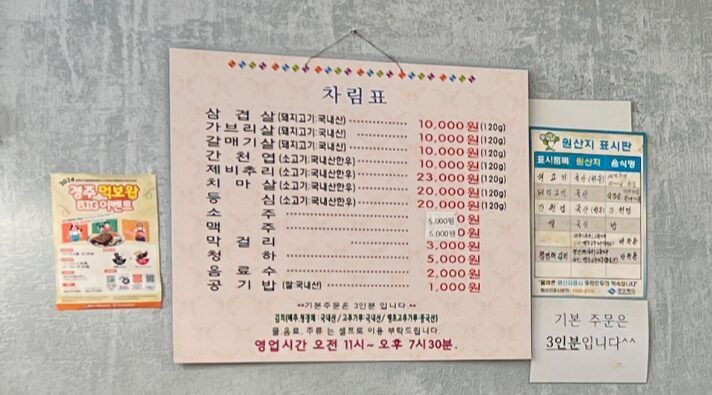 차림표
삼겹살(돼지고기:국내산) 10,000원(120g)
가브리살(돼지고기:국내산) 10,000원(120g)
갈매기살(돼지고기:국내산) 10,000원(120g)
간천엽(소고기:국내산한우) 10,000원
제비추리(소고기:국내산한우) 23,000원(120g)
치마살(소고기:국내산한우) 20,000원(120g)
등심(소고기:국내산한우) 20,000원(120g)
소주 5,000원
맥주 5,000원
막걸리 3,000원
청하 5,000원
음료수 2,000원
공기밥(쌀:국내산) 1,000원
기본주문은 3인분 입니다.
물,음료, 주류는 셀프로 이용 부탁드립니다.
영업시간 오전 11시~오후 7시30분.
2024
경주 먹보왕
BIG이벤트
원산지 표시판
표시품목 원산지 음식명
쌀 국산 밥
기본 주문은
3인분입니다^^